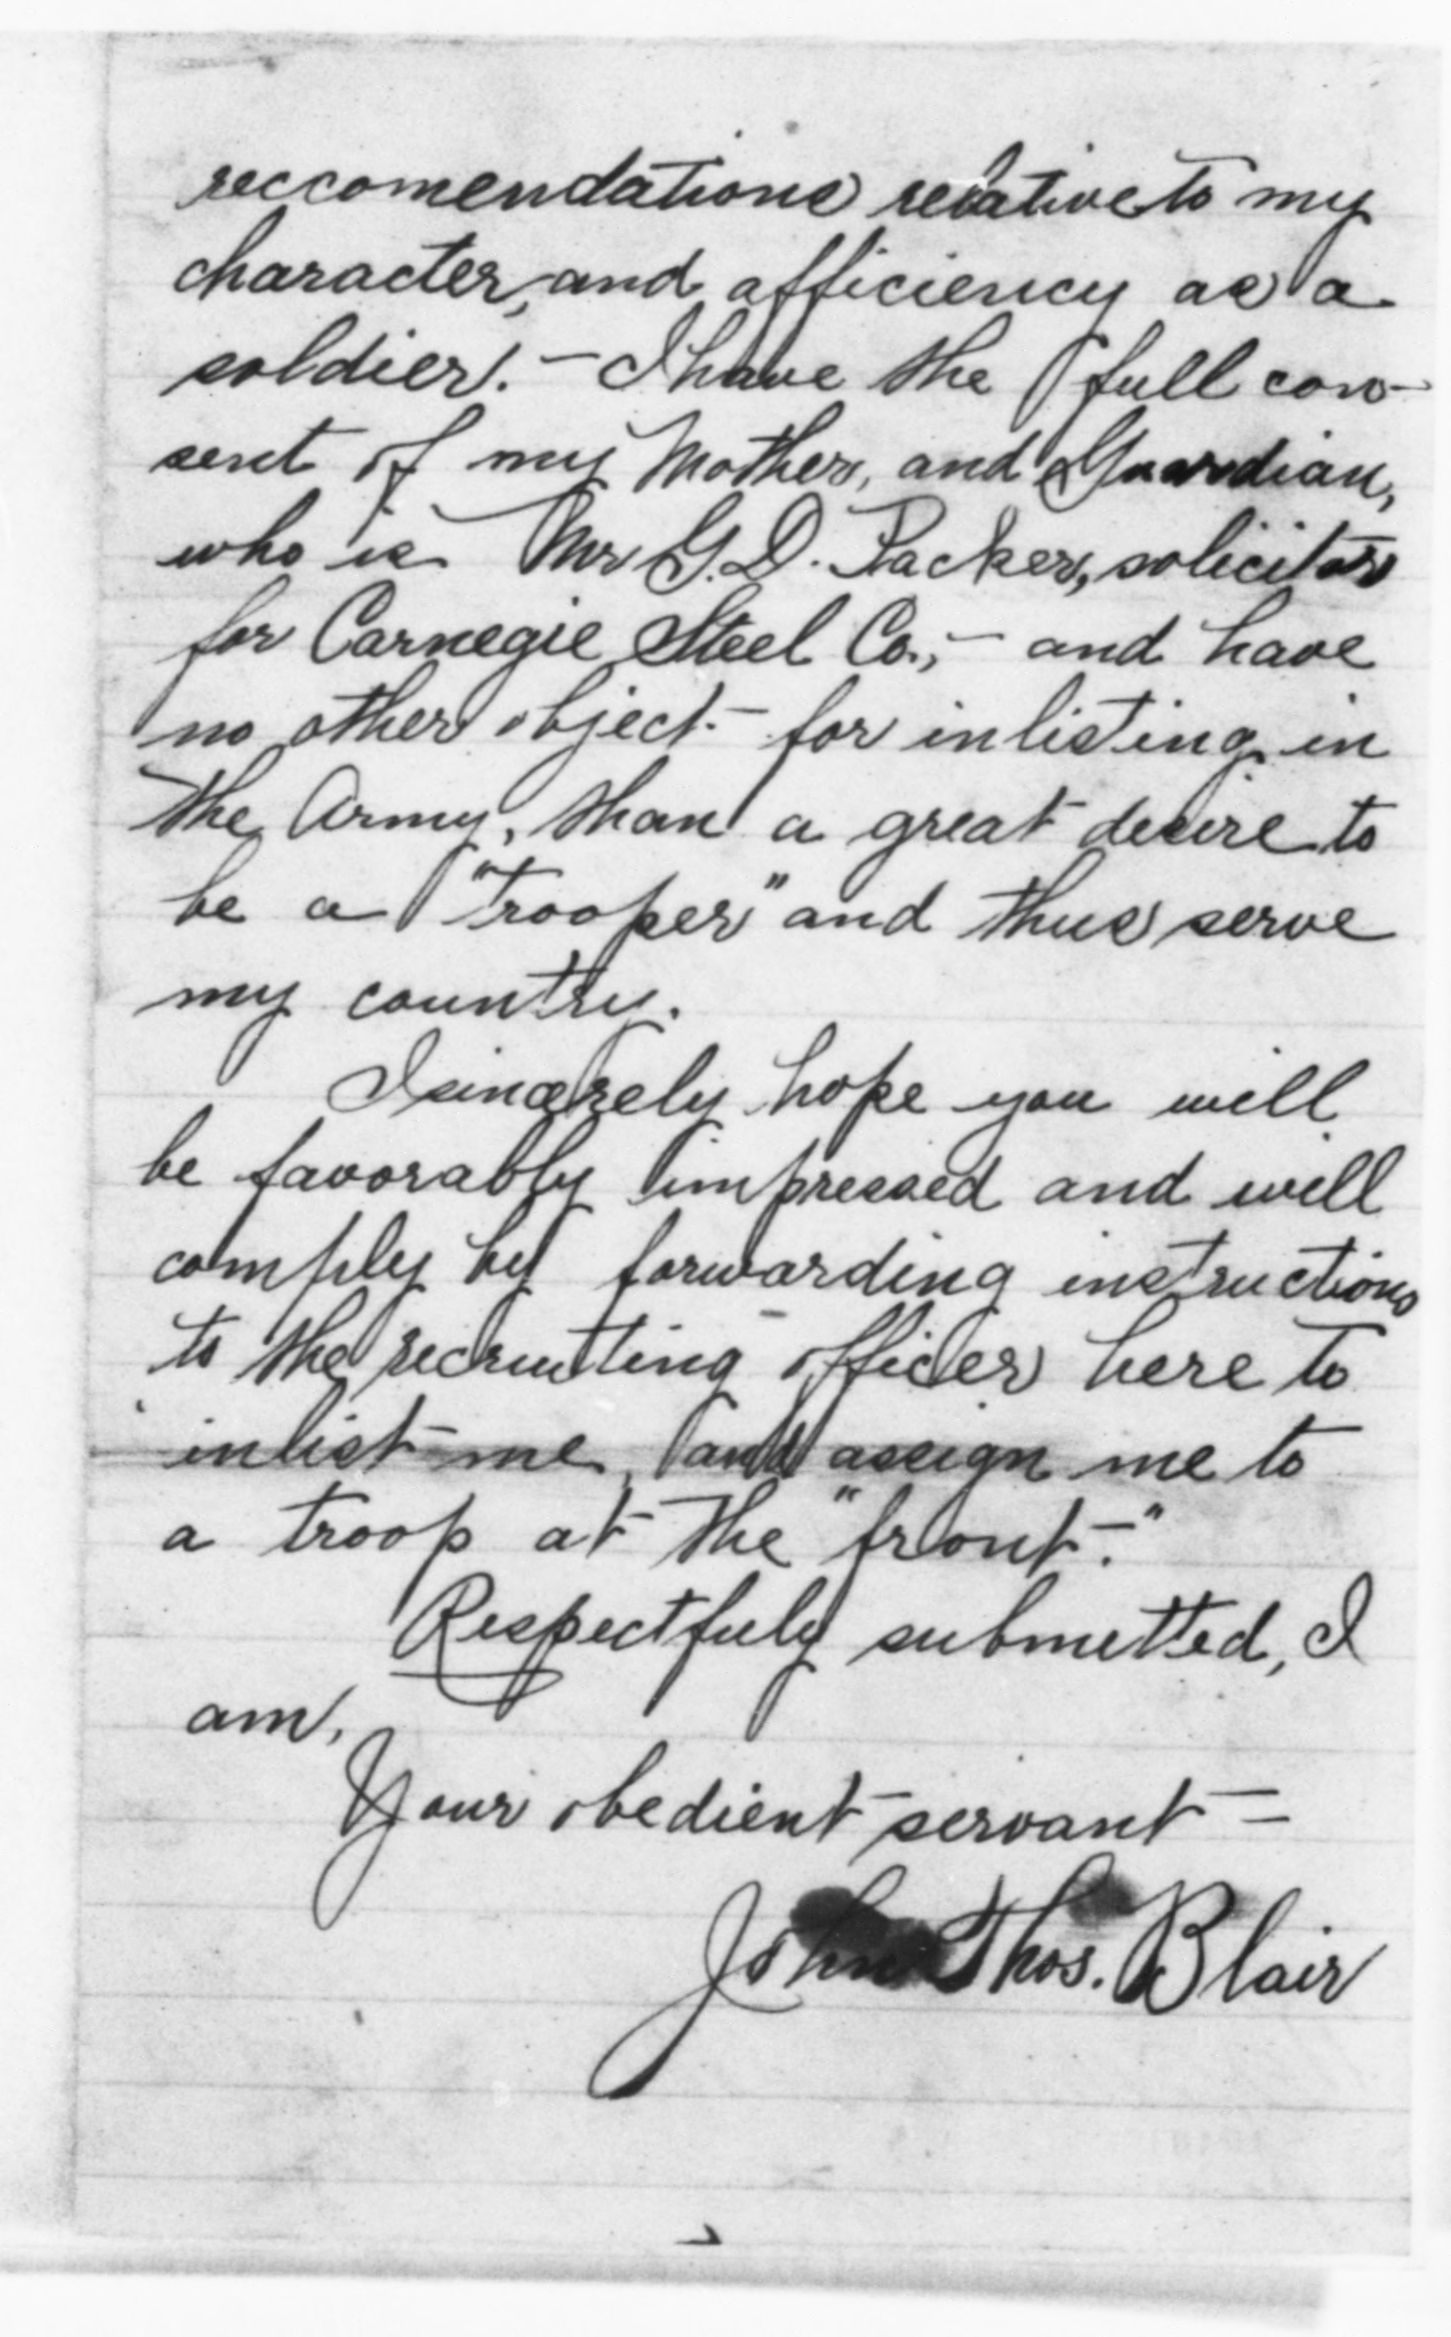 reccomendations relative to my
character, and afficiency as a
soldier. – I have the full con-
sent of my Mother, and Guardian,
who is Mr G. D. Packer, solicitor
for Carnegie Steel Co., – and have
no other object – for inlisting in
the Army, than a great desire to
be a "trooper" and thus serve
my country.
I sincerely hope you will
be favorably impressed and will
comply by forwarding instructions
to the recruiting officer here to
inlist me, and assign me to
a troop at the "front."
Respectfuly submitted, I
am,
Your obedient servant –
John Thos. Blair